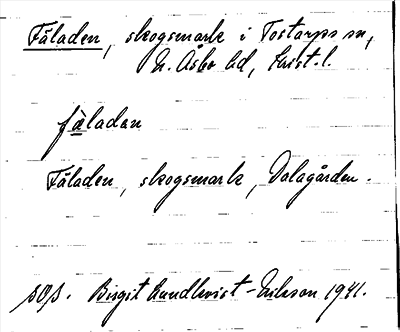 Fäladen, skogsmark i Tostarps sn,
N. Åsbo hd, Krist. l.
fäladan
Fäladen, skogsmark, Dalagården.
Birgit Lundkvist-Nilsson 1941.